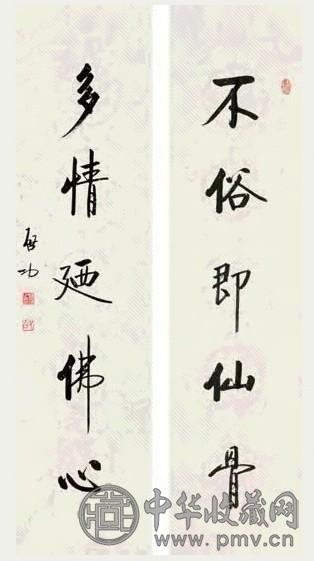 不俗即仙骨
多情廼佛心
启功
中华收藏网
www.pmv.cn